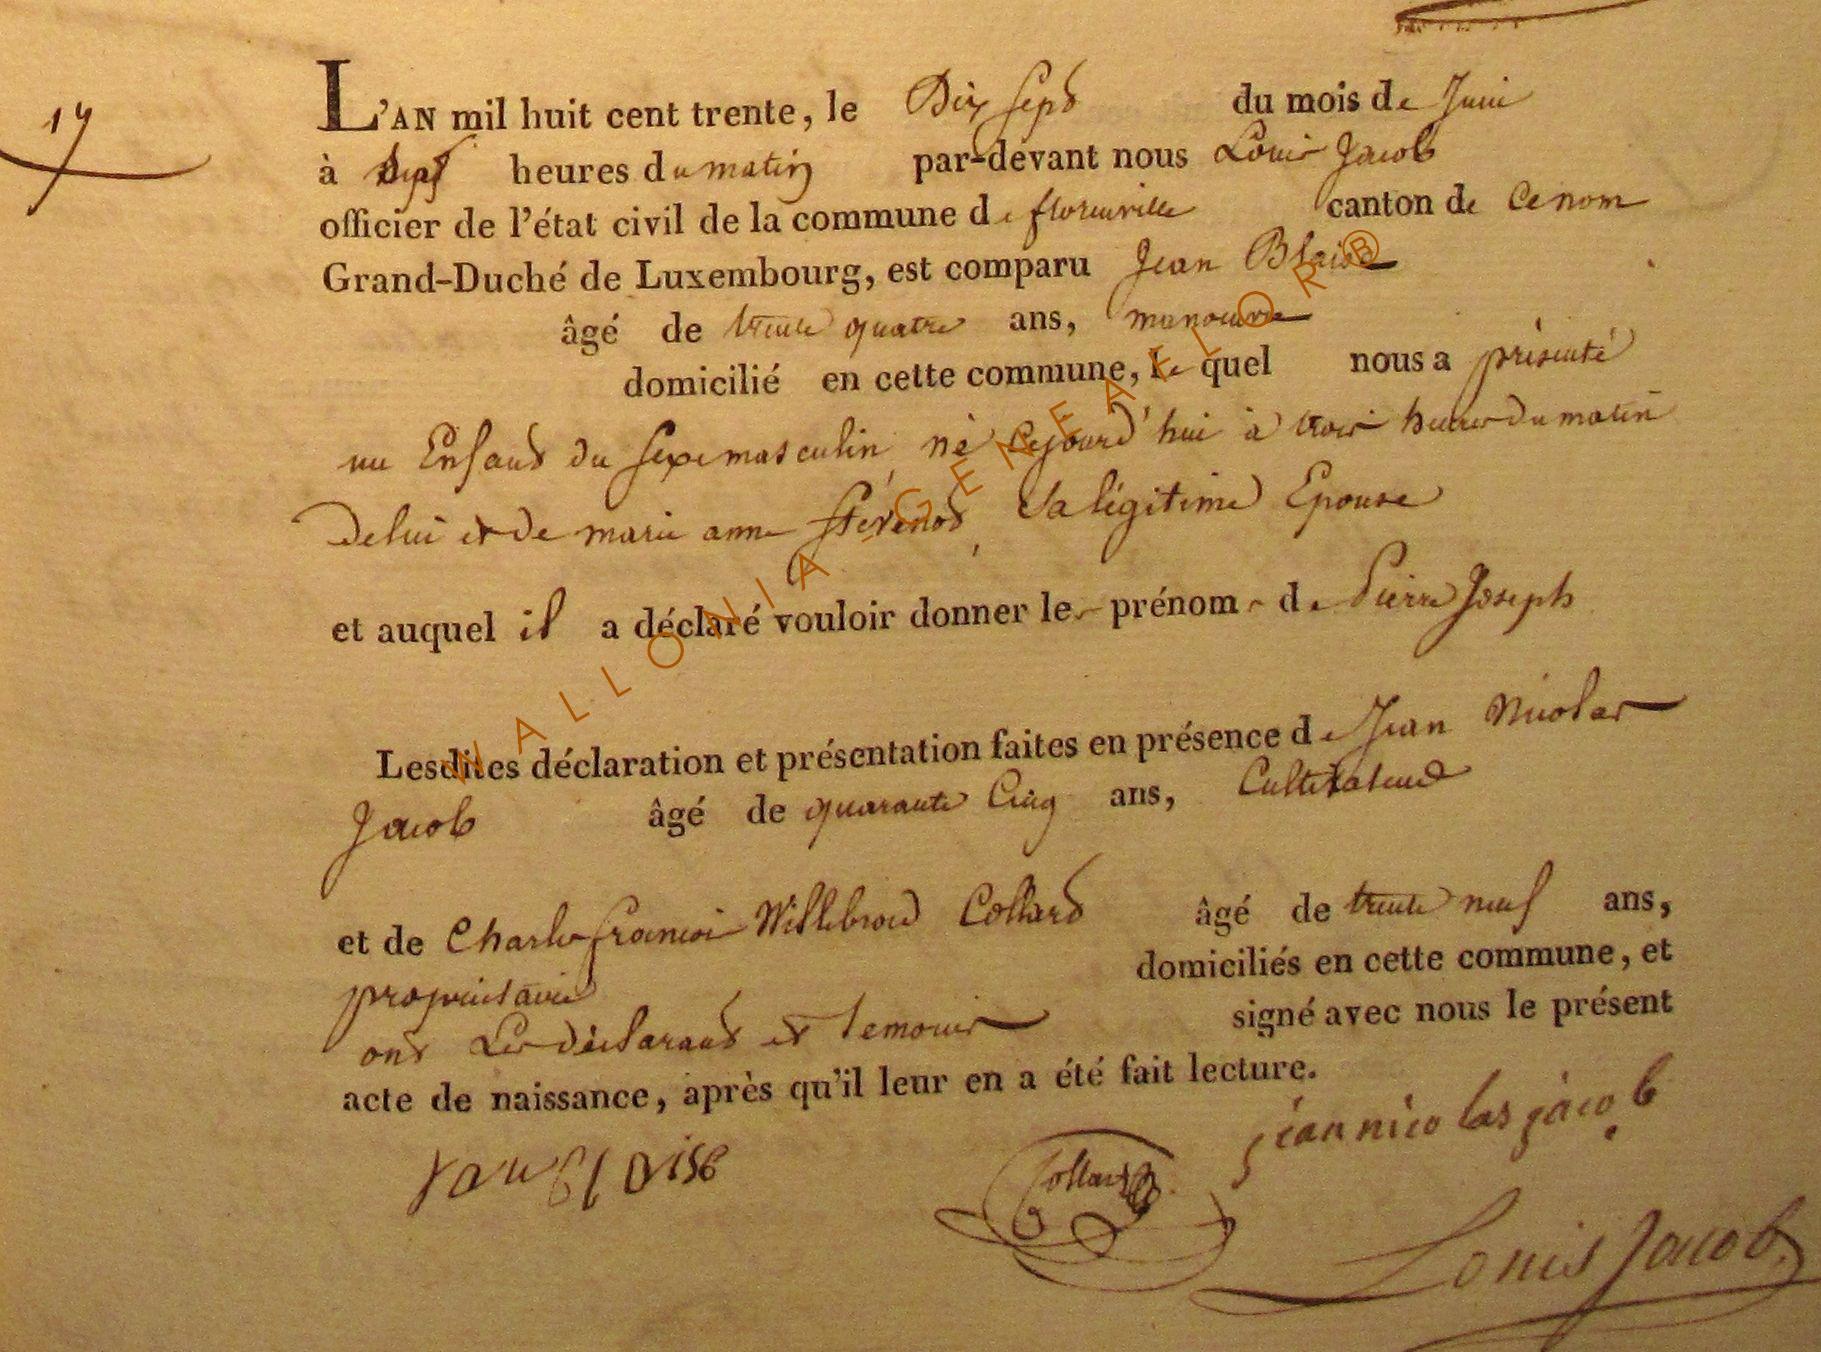 17
L'AN mil huit cent trente, le Dix Sept du mois de Juin
à Sept heures du matin par-devant nous Louis Jacob
officier de l'état civil de la commune de florenville canton de Ce nom
Grand-Duché de Luxembourg, est comparu Jean Blaise
âgé de trente quatre ans, manouvre
domicilié en cette commune, le quel nous a présenté
un Enfant du Sexe masculin, né Cejourd'hui à trois heures du matin
de lui et de marie anne Sa légitime Epouse
et auquel il a déclaré vouloir donner les prénoms de Pierre Joseph
Lesdites déclaration et présentation faites en présence de Jean Nicolas
Jacob âgé de quarante Cinq ans, Cultivateur
et de Charles françois Willebrord Collard âgé de trente neuf ans,
propriétaire domiciliés en cette commune, et
ont Les déclarant et temoins signé avec nous le présent
acte de naissance, après qu'il leur en a été fait lecture.
jean nicolas jacob
Jean Blaise Collard
Louis Jacob
WALLONIA-GENEAFLOR®